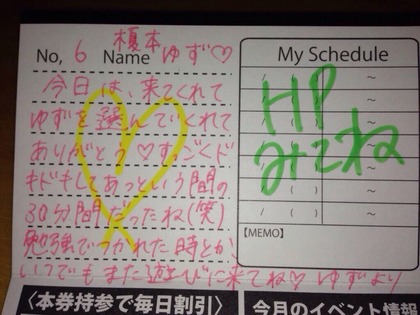 No, 6 Name 榎本ゆず♡
今日は、来てくれて
ゆずを選んでくれて
ありがとう♡すごくド
キドキしてあっという間の
30分間だったね(笑)
勉強でつかれた時とか、
いつでもまた遊びに来てね♡ ゆずより
My Schedule
/ ( ) ~
/ ( ) ~
/ ( ) ~
/ ( ) ~
/ ( ) ~
/ ( ) ~
/ ( ) ~
HP
みてね
【MEMO】
〈本券持参で毎日割引〉
今月のイベント情報